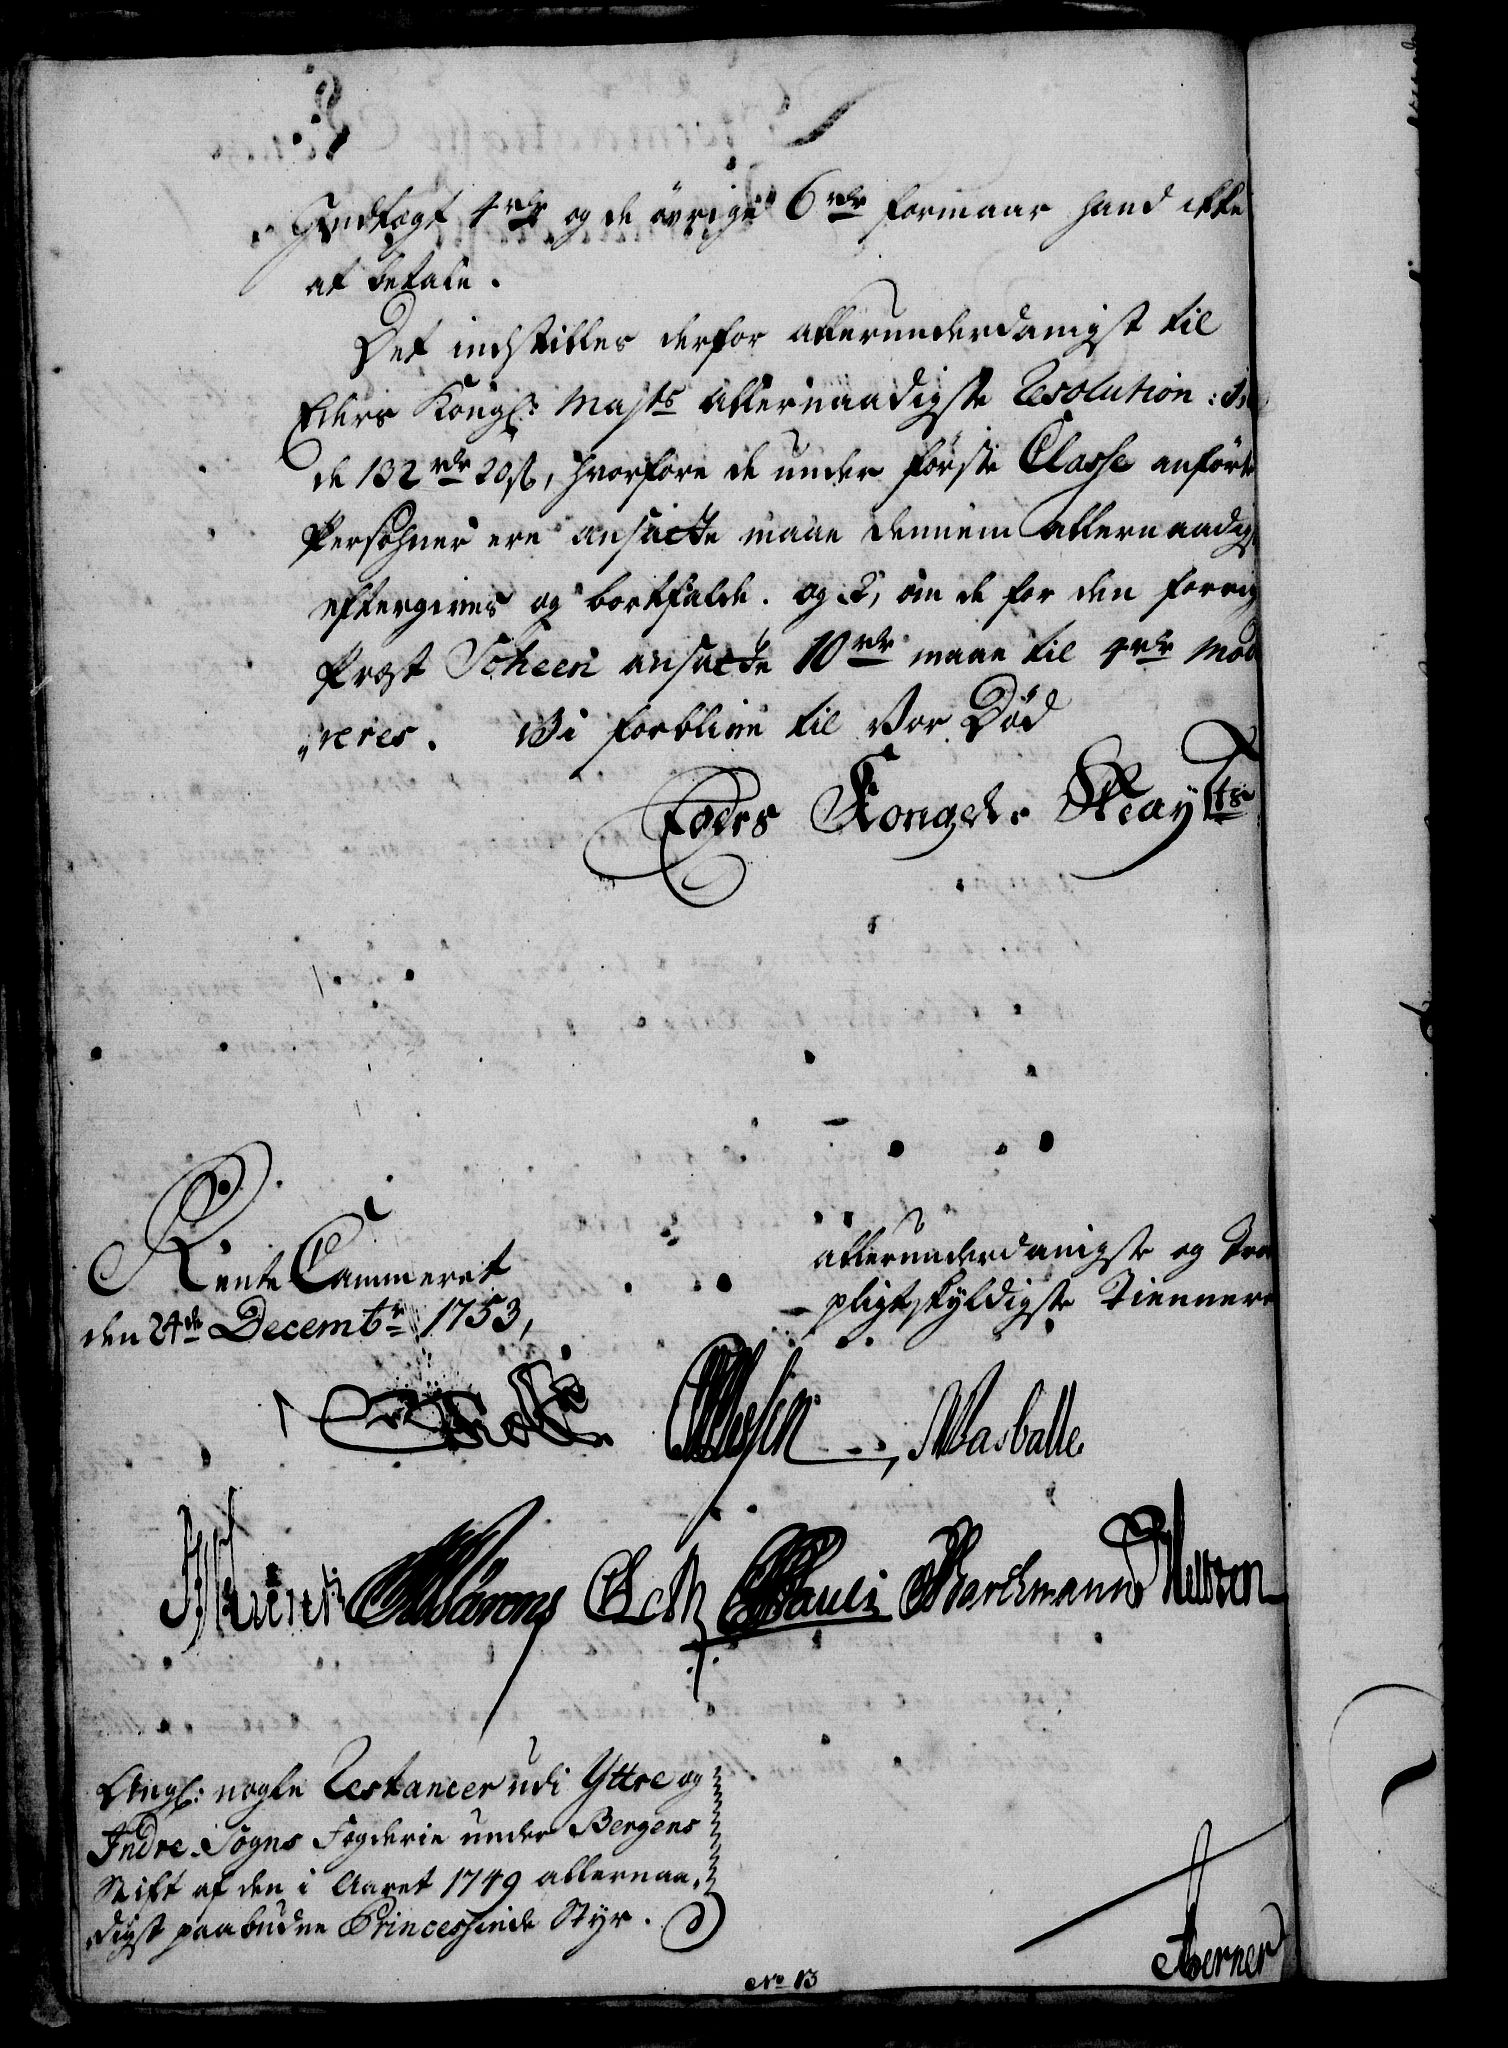 Indtægt 4 rdr og de øvrige 6 rdr formaar hand ikke
at betale.
Det indstilles derfor allerunderdanigst til
Eders Kongl: Majts allernaadigste Resolution:
de 132 rdr 20 ß, hvorfore de under förste Classe anförte
Persohner ere ansatte maae dennem allernaadigst
eftergives og bortfalde. og 2, om de for den forrig
Præst Scheen ansatte 10 rdr maae til 4 rdr mode
„reres. Vi forblive til Vor Død
Eders Kongel. Mayts
Rente Cammeret
den 24de Decembr 1753,
allerunderdanigste og Troe
pligtskyldigste Tiennere
Wasballe
Pauli Barchmann
Angl: nogle Restancer udi Yttre og
Indre Sogns Fogderie under Bergens
Stift af den i Aaret 1749 allernaa„
digst paabudne Princessinde Styr.
Berner
No 13